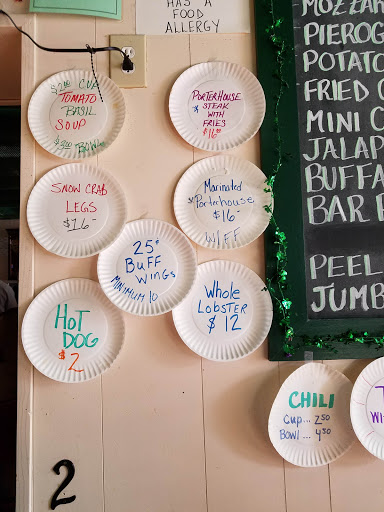 HAS A
FOOD
ALLERGY
$2.00 CUP
TOMATO
BASIL
SOUP
BOWL
PORTERHOUSE
STEAK
WITH
FRIES
$16.00
SNOW CRAB
LEGS
$16-
Marinated
Porterhouse
$16-
W/FF
25¢
BUFF
WINGS
MINIMUM 10
Whole
Lobster
$12
HOT
DOG
$2
CHILI
Cup... 2.50
Bowl... 4.50
MOZZAR
PIEROG
POTATO
FRIED C
MINI C
JALAP
BUFFA
BAR P
PEEL
JUMB
2